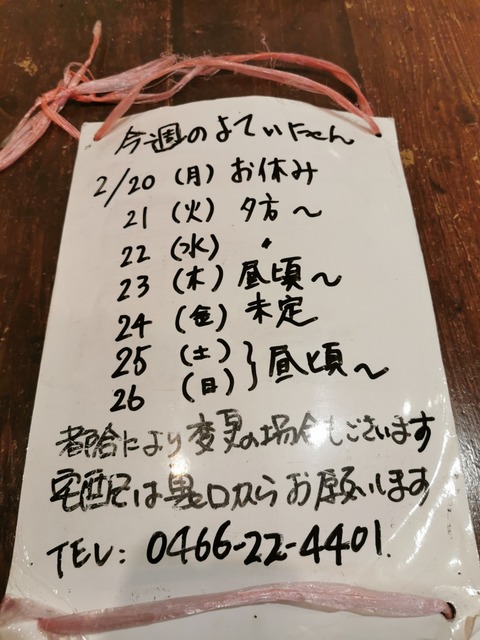 今週のよていだよん
2/20 (月) お休み
21 (火) 夕方〜
22 (水) 〃
23 (木) 昼頃〜
24 (金) 未定
25 (土)
26 (日) } 昼頃〜
都合により変更の場合もございます
宅配は裏口からお願いします
TEL: 0466-22-4401.